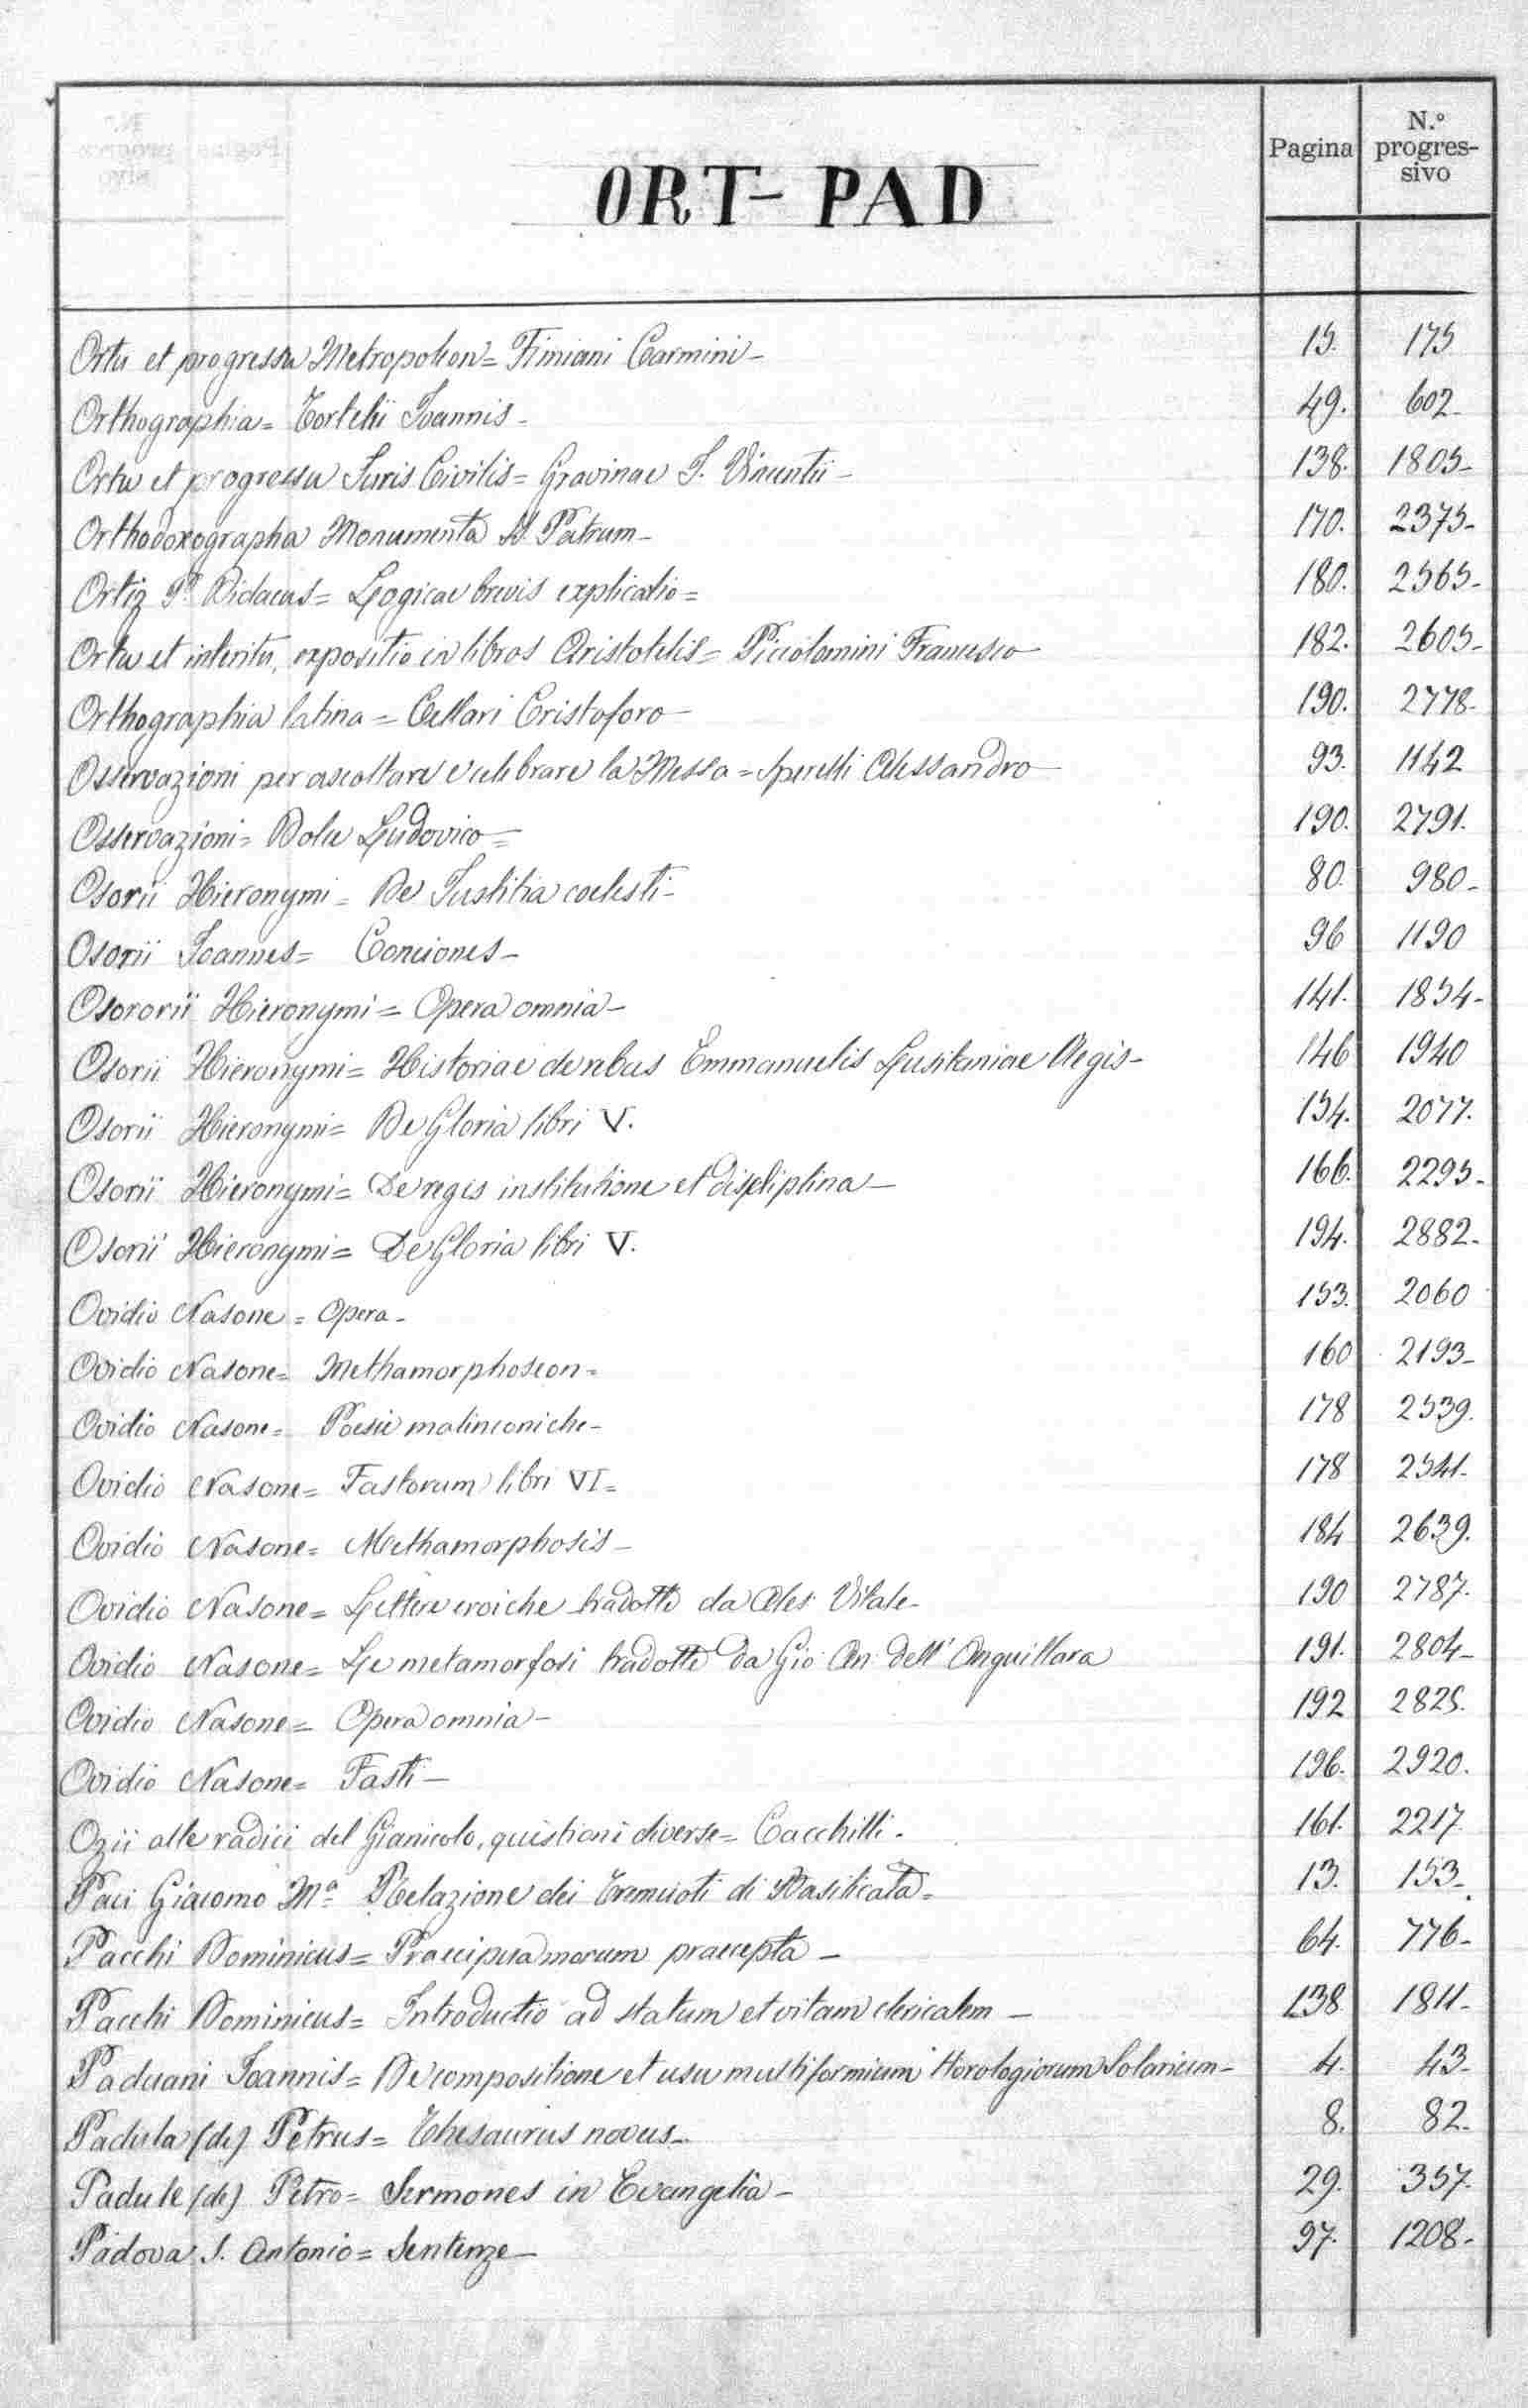 Pagina
N.º progres-
sivo
ORT - PAD
Ortu et progressu Metropoleon = Fimiani Carmini - 15. 175
Orthographia = Tortelii Joannis - 49. 602 -
Ortu et progressu Juris Civilis = Gravinae J. Vincentii - 138. 1805 -
Orthodoxographa Monumenta SS. Patrum - 170. 2375 -
Ortiz P. Didacus = Logicae brevis explicatio = 180. 2565 -
Ortu et interitu, expositio in libros Aristotelis = Piccolomini Francesco 182. 2605 -
Orthographia latina = Cellari Cristoforo - 190. 2778 -
Osservazioni per ascoltare e celebrare la Messa = Sperelli Alessandro 93. 1142
Osservazioni = Dolce Ludovico = 190. 2791.
Osorii Hieronymi = De Justitia coelesti - 80. 980 -
Osorii Joannes = Conciones - 96 1190
Osororii Hieronymi = Opera omnia - 141. 1854 -
Osorii Hieronymi = Historiae de rebus Emmanuelis Lusitaniae Regis - 146 1940
Osorii Hieronymi = De Gloria libri V. 154. 2077.
Osorii Hieronymi = De regis institutione et discliplina - 166. 2295 -
Osorii Hieronymi = De Gloria libri V. 194. 2882 -
Ovidio Nasone = Opera - 153. 2060
Ovidio Nasone = Methamorphoseon = 160 2193 -
Ovidio Nasone = Poesie malinconiche - 178 2539.
Ovidio Nasone = Fastorum libri VI = 178 2541 -
Ovidio Nasone = Methamorphosis - 184 2639.
Ovidio Nasone = Lettere eroiche tradotte da Ales. Vitale - 190 2787.
Ovidio Nasone = Le metamorfosi tradotte da Gio. An. dell' Anguillara 191. 2804 -
Ovidio Nasone = Opera omnia - 192 2825.
Ovidio Nasone = Fasti - 196. 2920.
Ozii alle radici del Gianicolo, quistioni diverse = Cacchilli - 161. 2217.
Paci Giacomo Mª Relazione dei tremuoti di Basilicata = 13. 153 -
Pacchi Dominicus = Praecipua morum praecepta - 64. 776 -
Pacchi Dominicus = Introductio ad statum et vitam clericalem - 138 1811 -
Paduani Joannis = De compositione et usu multiformium Horologiorum Solarium - 4. 43 -
Padula (de) Petrus = Thesaurus novus - 8. 82 -
Padule (de) Petro = Sermones in Evangelia - 29. 357.
Padova S. Antonio = Sentenze - 97. 1208 -